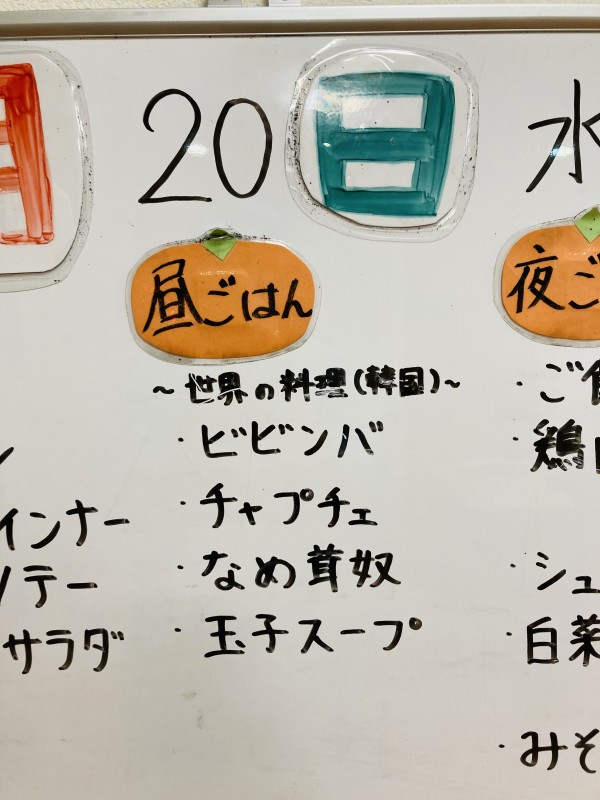 20日
水
昼ごはん
夜ご
～世界の料理(韓国)～
・ビビンバ
・チャプチェ
・なめ茸奴
・玉子スープ
インナー
テー
サラダ
・ご
・鶏
・シュ
・白菜
・みそ